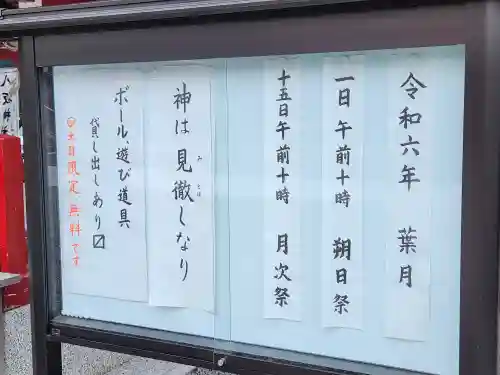 令和六年 葉月
一日午前十時 朔日祭
十五日午前十時 月次祭
神は見徹しなり
ボール、遊び道具
貸し出しあり〼
土日限定無料です